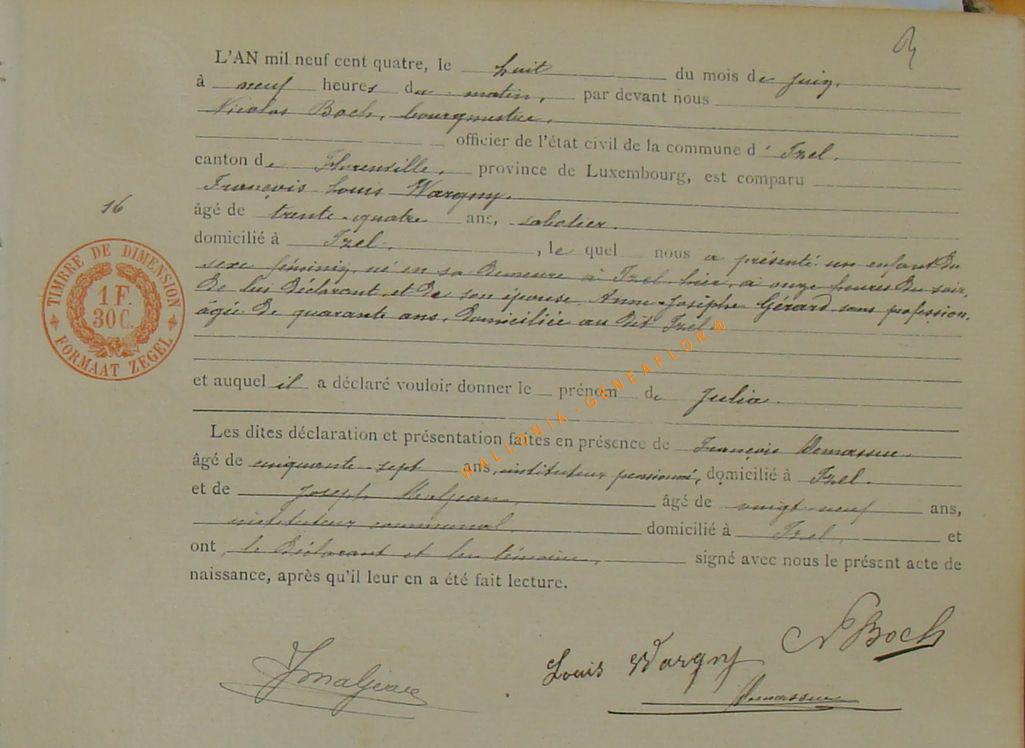 L'AN mil neuf cent quatre, le huit du mois de juin,
à neuf heures du matin, par devant nous
Nicolas Boch, bourgmestre,
officier de l'état civil de la commune d'Izel.
canton de Florenville, province de Luxembourg, est comparu
François Louis Wargny.
16
âgé de trente-quatre ans, sabotier.
domicilié à Izel. , le quel nous a présenté un enfant du
sexe féminin, né en sa demeure à Izel hier, à onze heures du soir,
de lui déclarant et de son épouse Anne-Josèphe Gérard sans profession,
âgée de quarante ans, domiciliée au dit Izel.
TIMBRE DE DIMENSION
1 F.
30 C.
FORMAAT ZEGEL
WALLONIA-GENEAFLOR
et auquel il a déclaré vouloir donner le prénom de Julia.
Les dites déclaration et présentation faites en présence de François Demasure
âgé de cinquante-sept ans, instituteur pensionné, domicilié à Izel.
et de Joseph Maljean, âgé de vingt-neuf ans,
instituteur communal domicilié à Izel, et
ont, le déclarant et les témoins, signé avec nous le présent acte de
naissance, après qu'il leur en a été fait lecture.
N Boch
JMaljean
Louis Wargny